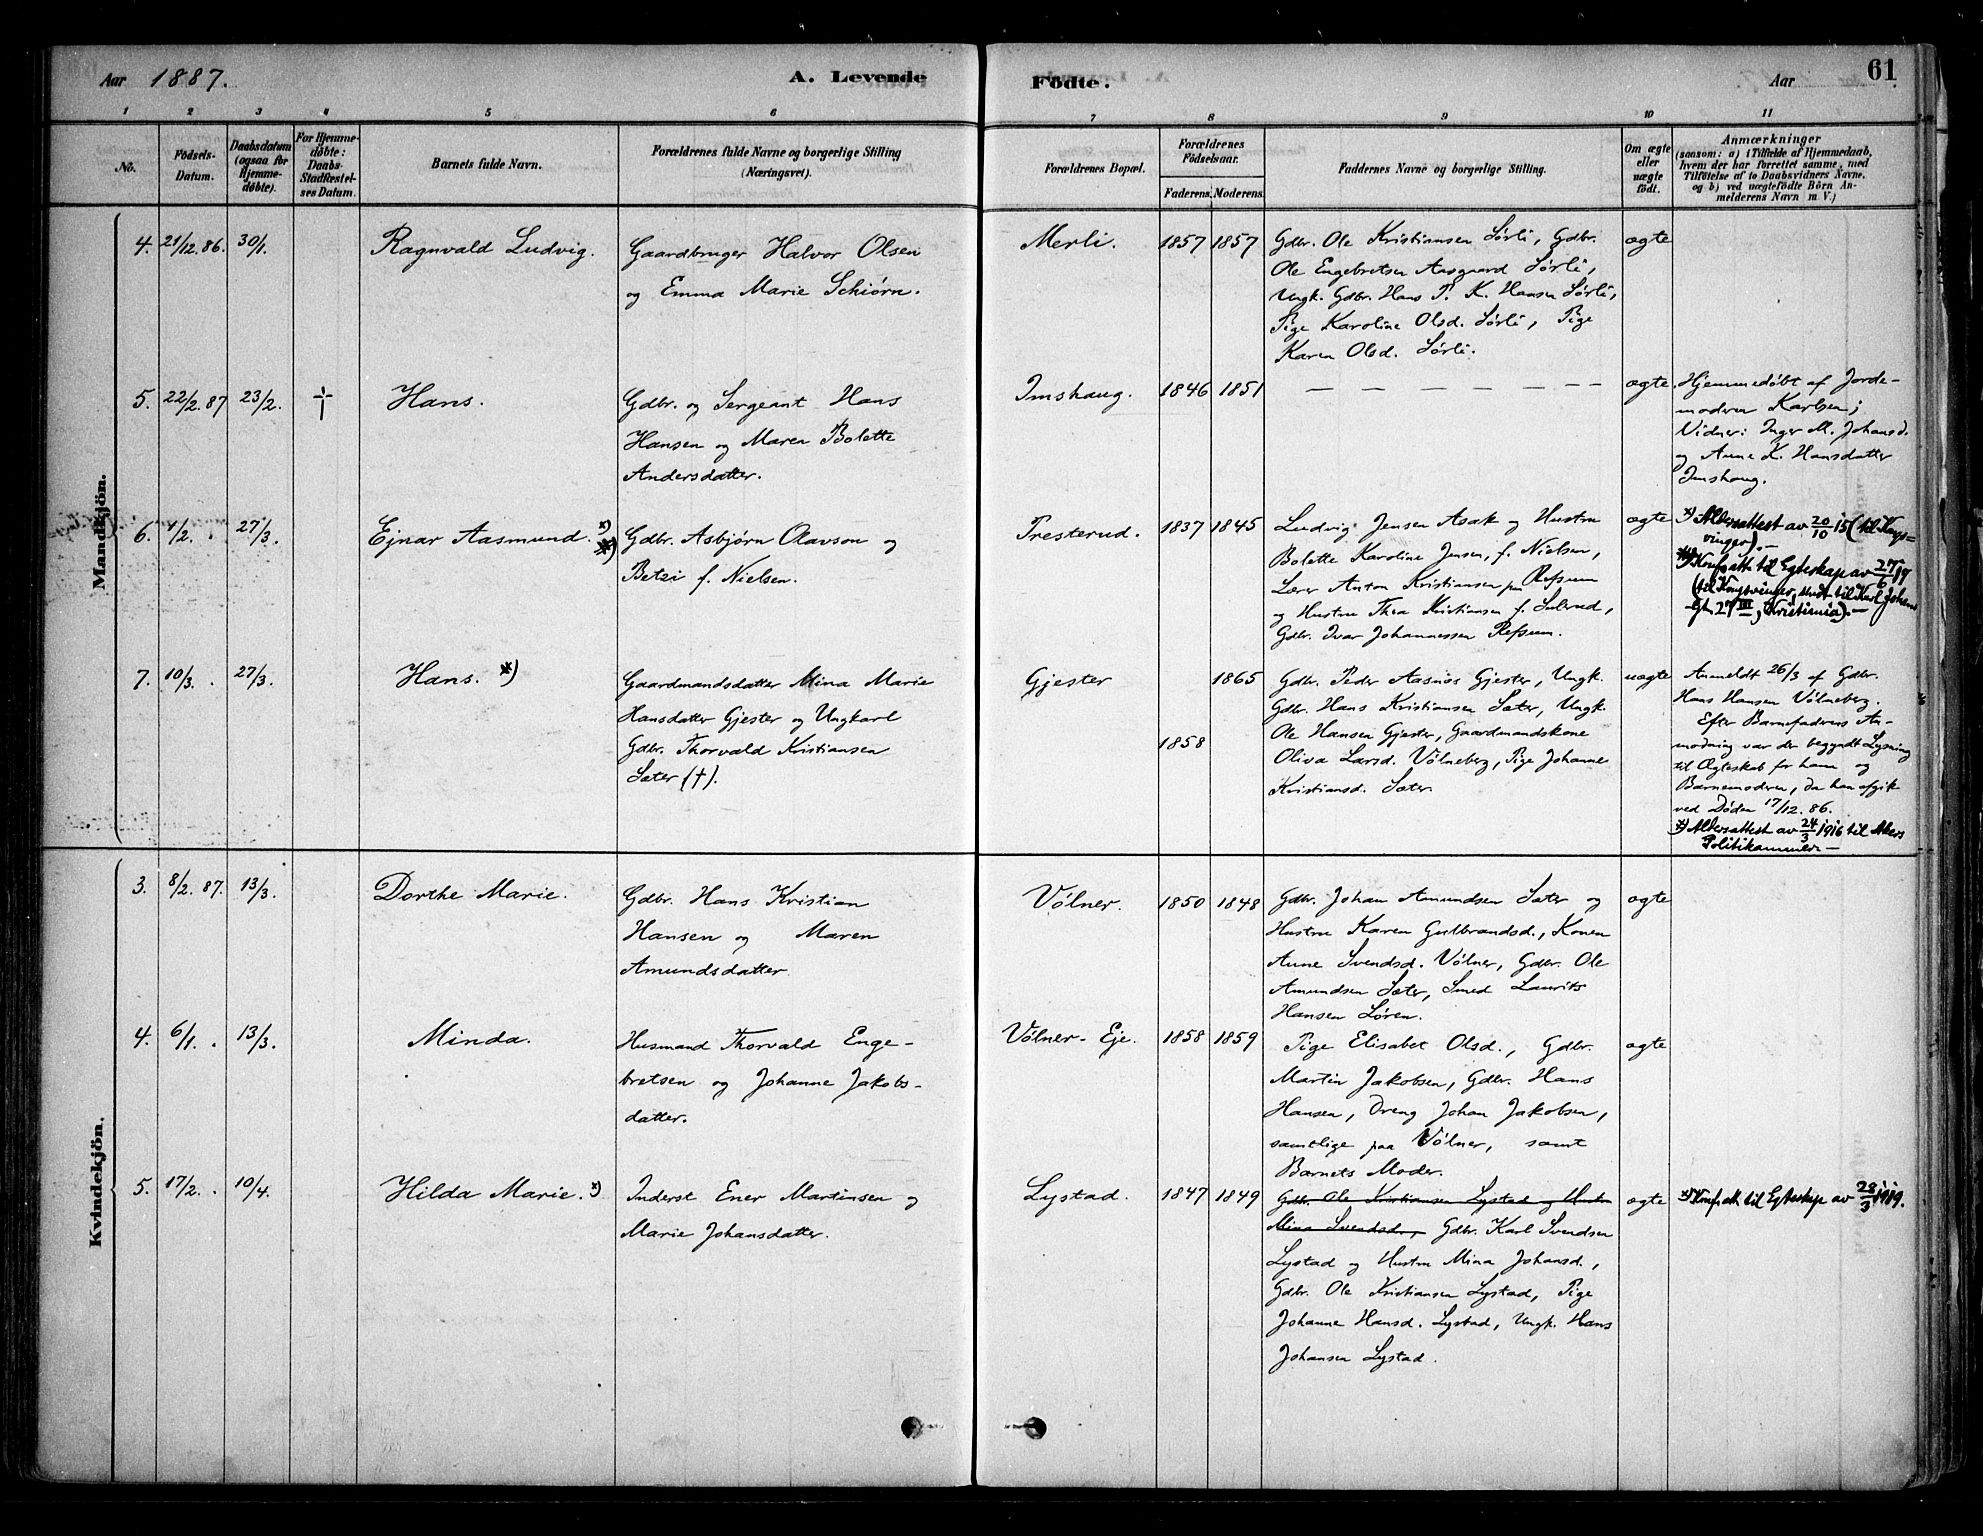 Aar 1887. A. Levende Födte. Aar 61
1 2 3 4 5 6 7 8 9 10 11
No. Födsels-Datum. Daabsdatum (ogsaa for Hjemmedöbte). For Hjemmedöbte: Daabs-Stadfæstelses Datum. Barnets fulde Navn. Forældrenes fulde Navne og borgerlige Stilling (Næringsvei). Forældrenes Bopæl. Forældrenes Födselsaar. Faderens. Moderens. Faddernes Navne og borgerlige Stilling. Om ægte eller uægte födt. Anmærkninger (saasom: a) i Tilfælde af Hjemmedaab, hvem der har forrettet samme, med Tilföielse af to Daabsvidners Navne, og b) ved uægtefödte Börn Anmelderens Navn m. V.)
Mandkjön.
4. 21/12. 86. 30/1. Ragnvald Ludvig. Gaardbruger Halvor Olsen Merli. 1857 1857 Gdbr. Ole Kristiansen Sørli, Gdbr. ægte
og Emma Marie Schiørn. Ole Engebretsen Aasgaard Sørli,
Ungk. Gdbr. Hans P. K. Hansen Sørli,
Pige Karoline Olsd. Sørli, Pige
Karen Olsd. Sørli.
5. 22/2. 87 23/2. † Hans. Gdbr. og Sergeant Hans Imshaug. 1846 1851 — — — — — — — ægte. Hjemmedøbt af Jorde-
Hansen og Maren Bolette moderen Karlsen;
Andersdatter. Vidner: Inger M. Johansd.
og Anne K. Hansdatter
Imshaug.
6. 4/2. 27/3. Ejnar Aasmund. *) Gdbr. Asbjørn Olavson og Presterud. 1837 1845 Ludvig Jensen Asak og Hustru ægte *) Aldersattest av 20/10 15 (til Kongs=
**) Betzi f. Nielsen. Bolette Karoline Jensen, f. Nielsen, vinger).—
Lærer Anton Kristiansen paa Refsum **) Konf.att. til Egteskap av 27/6 19
og Hustru Thea Kristiansen f. Sulerud, (til Kongsvinger, sendt til Karl Johans
Gdbr. Ivar Johannessen Refsum. gt. 27 III, Kristiania).—
7. 10/3. 27/3. Hans. *) Gaardmandsdatter Mina Marie Gjester 1865 Gdbr. Peder Aasnæs Gjester, Ungk. uægte Anmeldt 26/3 af Gdbr.
Hansdatter Gjester og Ungkarl Gdbr. Hans Kristiansen Sæter, Ungk. Hans Hansen Vølneberg.
Gdbr. Thorvald Kristiansen 1858 Ole Hansen Gjester, Gaardmandskone Efter Barnefaderens An-
Sæter (†). Oliva Larsd. Vølneberg, Pige Johanne modning var der begyndt Lysning
Kristiansd. Sæter. til Ægteskab for ham og
Barnemoderen, da han afgik
ved Døden 17/12. 86.
*) Aldersattest av 24/3 1916 til Akers
Politikammer.—
Kvindekjön.
3. 8/2. 87. 13/3. Dorthe Marie. Gdbr. Hans Kristian Vølner. 1850 1848 Gdbr. Johan Amundsen Sæter og ægte
Hansen og Maren Hustru Karen Gulbrandsd., Konen
Amundsdatter. Anne Svendsd. Vølner, Gdbr. Ole
Amundsen Sæter, Smed Laurits
Hansen Løren.
4. 6/1. 13/3. Minda. Husmand Thorvald Enge- Vølner-Eje. 1858 1859 Pige Elisabet Olsd., Gdbr. ægte
bretsen og Johanne Jakobs- Martin Jakobsen, Gdbr. Hans
datter. Hansen, Dreng Johan Jakobsen,
samtlige paa Vølner, samt
Barnets Moder.
5. 17/2. 10/4. Hilda Marie. *) Inderst Ener Martinsen og Lystad. 1847 1849 Gdbr. Ole Kristiansen Lystad og Hustru ægte *) Konf.att. til Egteskap av 28/3 1919.
Marie Johansdatter. Mina Svendsd., Gdbr. Karl Svendsen
Lystad og Hustru Mina Johansd.,
Gdbr. Ole Kristiansen Lystad, Pige
Johanne Hansd. Lystad, Ungk. Hans
Johansen Lystad.